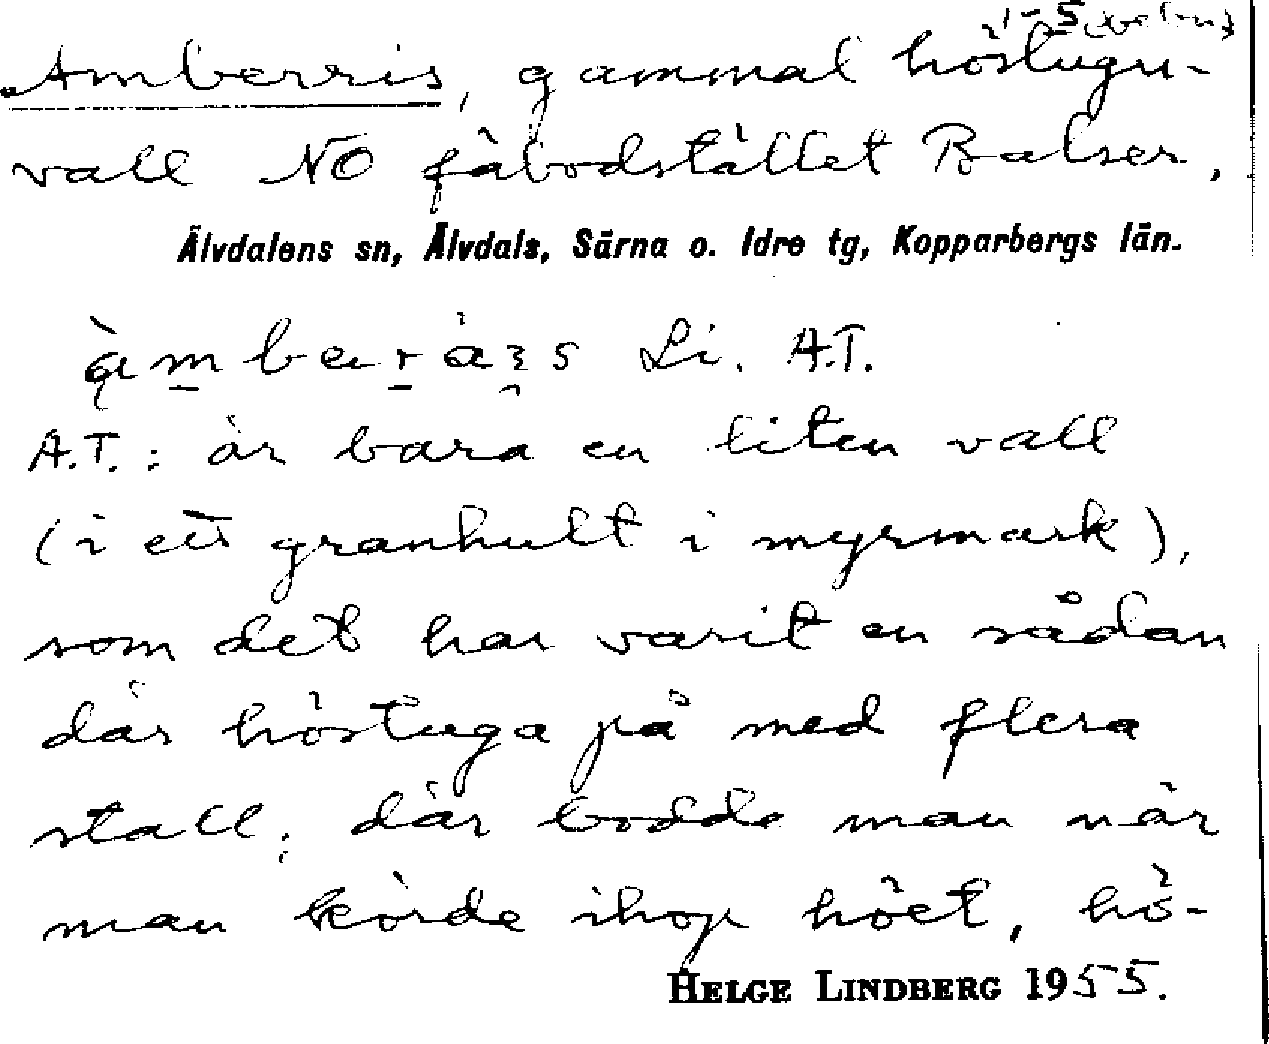 Amberris, gammal höstugu-
vall NO fäbodstället Balser.
Älvdalens sn, Älvdals, Särna o. Idre tg, Kopparbergs län.
Li. A.T.
A.T.: är bara en liten vall
(i ett granhult i myrmark),
som det har varit en sådan
där höstuga på med flera
stall; där bodde man när
man körde ihop höet, hö-
HELGE LINDBERG 1955.